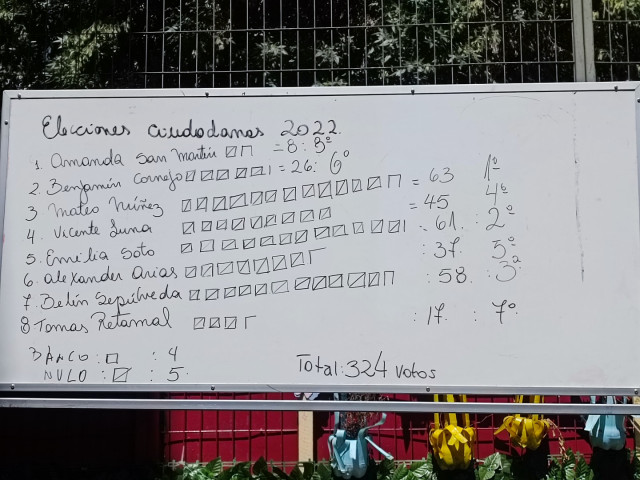 Elecciones ciudadanas 2022.
1. Amanda San Martín = 8 : 8º
2. Benjamín Cornejo = 26 : 6º
3 Mateo Núñez = 63 1º
4. Vicente Luna = 45 4º
5. Emilia Soto = 61. : 2º
6. Alexander Arias : 37. 5º
7. Belén Sepúlveda : 58. : 3º
8 Tomas Retamal : 17. : 7º
BANCO : : 4
NULO : : 5.
Total: 324 votos